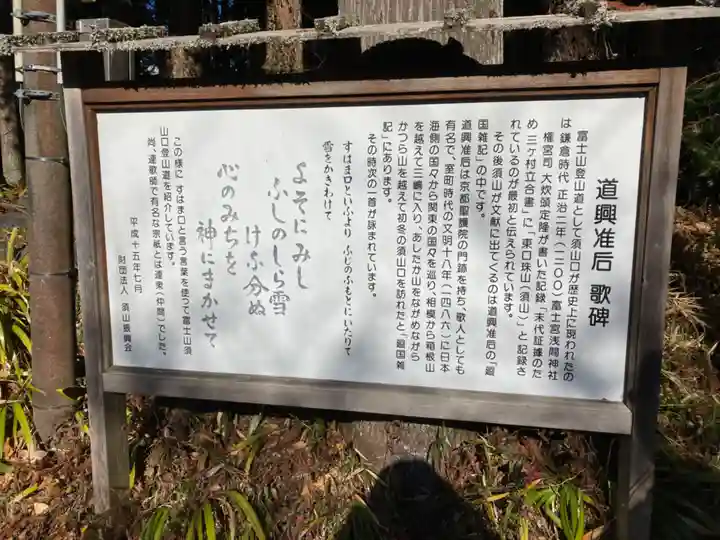 道興准后 歌碑
富士山登山道として須山口が歴史上に現われたの
は鎌倉時代 正治二年(一二〇〇)富士宮浅間神社
権宮司 大炊頭定隆が書いた記録「末代証據のた
め 三ヶ村立合書」に、東口珠山(須山)」と記録さ
れているのが最初と伝えられています。
その後須山が文献に出てくるのは道興准后の「廻
国雑記」の中です。
道興准后は京都聖護院の門跡を持ち、歌人としても
有名で、室町時代の文明十八年(一四八六)に日本
海側の国々から関東の国々を巡り、相模から箱根山
を越えて三嶋に入り、あしたか山をながめながら
かつら山を越えて初冬の須山口を訪れたと、「廻国雑
記」にあります。
その時次の一首が詠まれています。
すはま口といふより ふじのふもとにいたりて
雪をかきわけて
よそにみし
ふしのしら雪
けふ分ぬ
心のみちを
神にまかせて
この様に すはま口と言う言葉を使って富士山須
山口登山道を紹介しています。
尚、連歌師で有名な宗祇とは連衆(仲間)でした。
平成十五年七月
財団法人 須山振興会